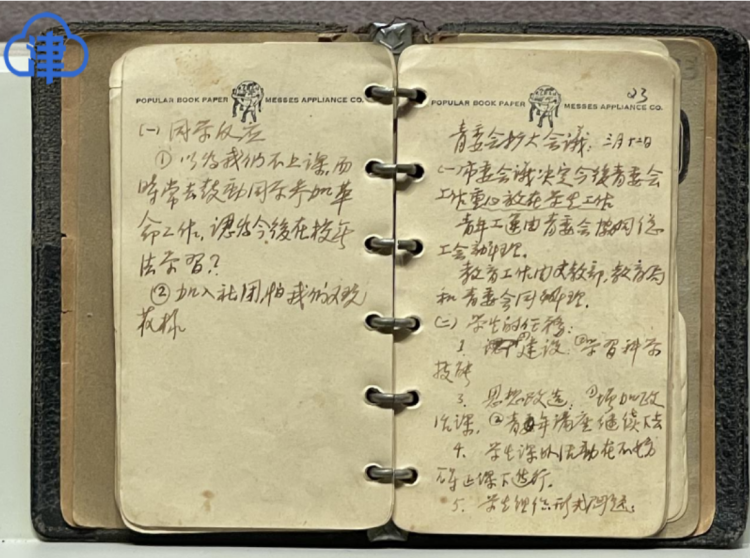 津
POPULAR BOOK PAPER MESSES APPLIANCE CO.
(一) 同学反应
① 以为我们不上课,而
時常去鼓動同学参加革
命工作,课为今後在校無
法学習?
② 加入社团,怕我们
POPULAR BOOK PAPER MESSES APPLIANCE CO.
23
青委会扩大会議:三月
(一)市委会議决定今後青委会
工作重心放在学生工作
青年工運由青委会協同总
工会辦理。
教育工作由文教部,教育局
和青委会同辦理。
(二) 学生的任務:
1. 建設 ②学習科学
技術
3. 思想改造:①增加政
治课,②青年講座继续下去
4. 学生课外活動在不妨
碍上课下進行。
5. 学生组织形式問題: